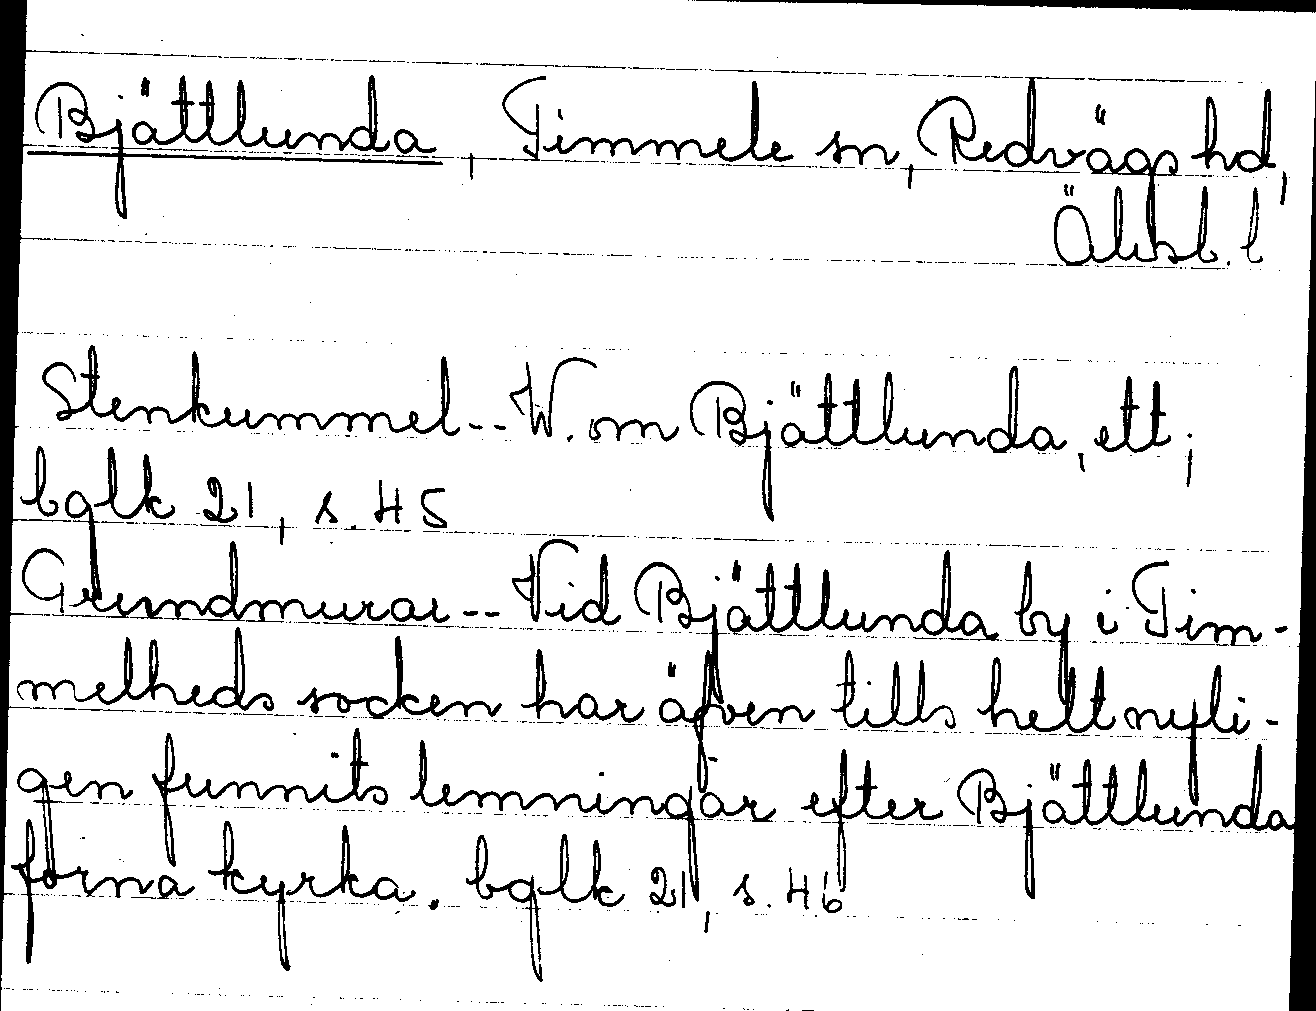 Bjättlunda, Timmele sn, Redvägs hd,
Älvsb. l
Stenkummel -- W. om Bjättlunda, ett;
bglk 21, s. 45
Grundmurar -- Vid Bjättlunda by i Tim-
melheds socken har äfven tills helt nyli-
gen funnits lemningar efter Bjättlunda
forna kyrka. bglk 21, s. 46